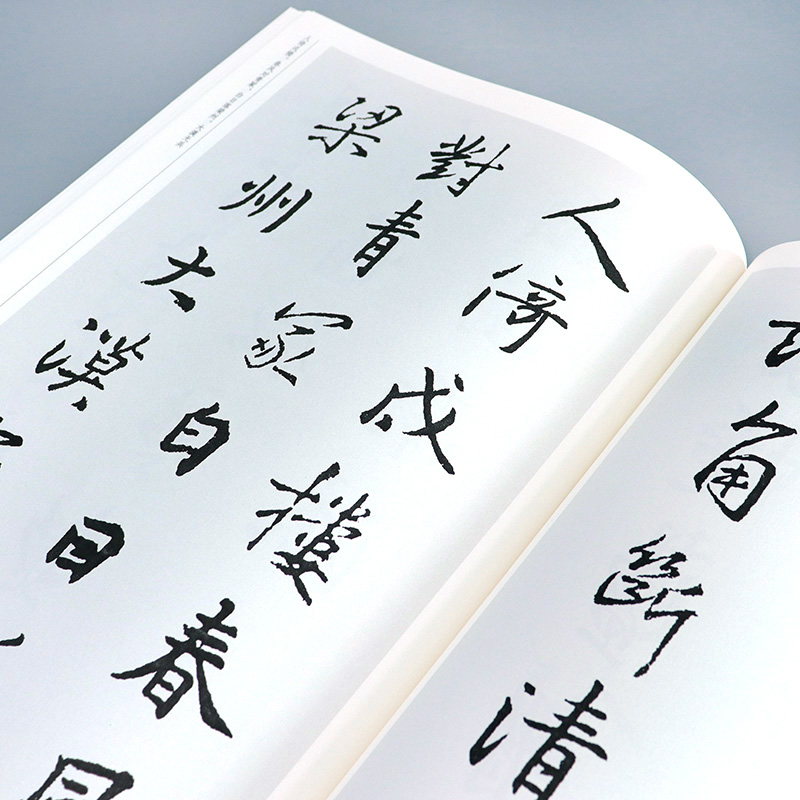 角斷清
人倚戍樓春
對青冢白日
梁州大漠